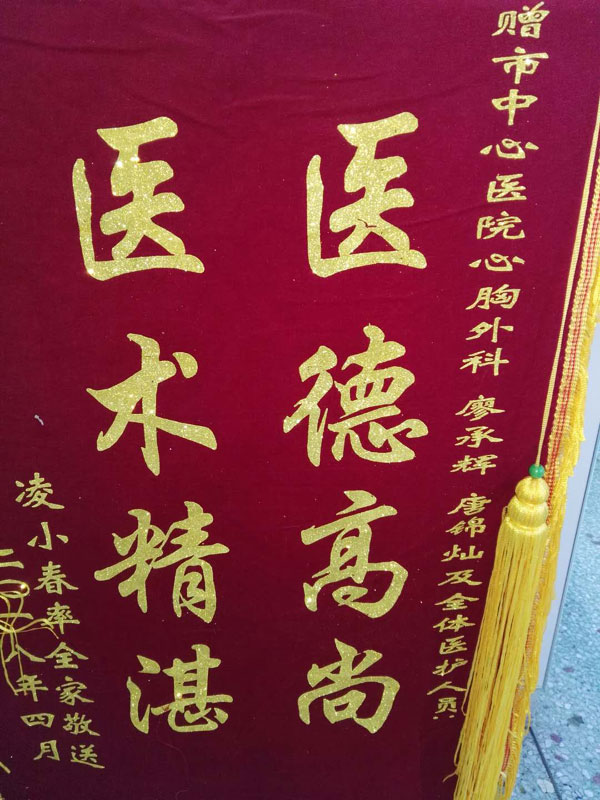 赠市中心医院心胸外科 廖承辉 唐锦灿及全体医护人员
医德高尚
医术精湛
凌小春率全家敬送
二〇一八年四月